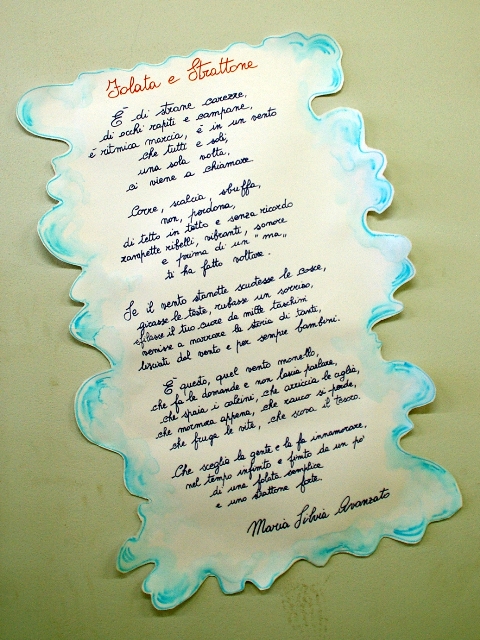 Folata e Strattone
È di strane carezze,
di occhi rapiti e campane,
è ritmica marcia, è in un vento
che tutti e soli,
una sola volta,
ci viene a chiamare.
Corre, scalcia, sbuffa,
non, perdona,
di tetto in tetto e senza ricordo
rampette ribelli, vibranti, sonore
e prima di un "ma"
ti ha fatto voltare.
Se il vento stanotte scuotesse le cose,
girasse le teste, rubasse un sorriso,
sfilasse il tuo cuore da mille taschini
venisse a narrare la storia di tanti,
lisciati dal vento e per sempre bambini.
È questo, quel vento monello,
che fa le domande e non lascia parlare,
che spaia i calzini, che arriccia le aglia,
che mormora appena, che rauco si perde,
che fruga le vite, che scova il tesoro.
Che sceglie la gente e la fa innamorare,
nel tempo infinito e finito da un po'
di una folata semplice
e uno strattone forte.
Maria Silvia Avanzato